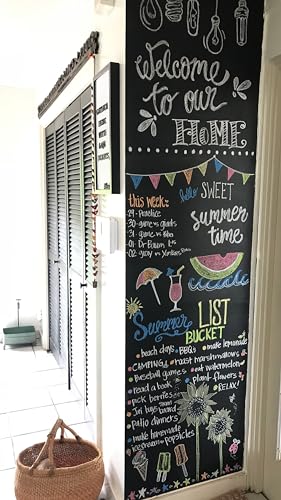 welcome
to our
HOME
this week:
29 - Practice
30 - game vs giants
31 - game vs
01 - Dr
02 - vs Yankees
hello SWEET
summer
time
Summer LIST
BUCKET
beach days
BBQs
make lemonade
CAMPING
roast marshmallows
Baseball games
eat watermelon
read a book
plant flowers
pick berries
RELAX!
Jax bugs
patio dinners
make homemade
icecream popsicles